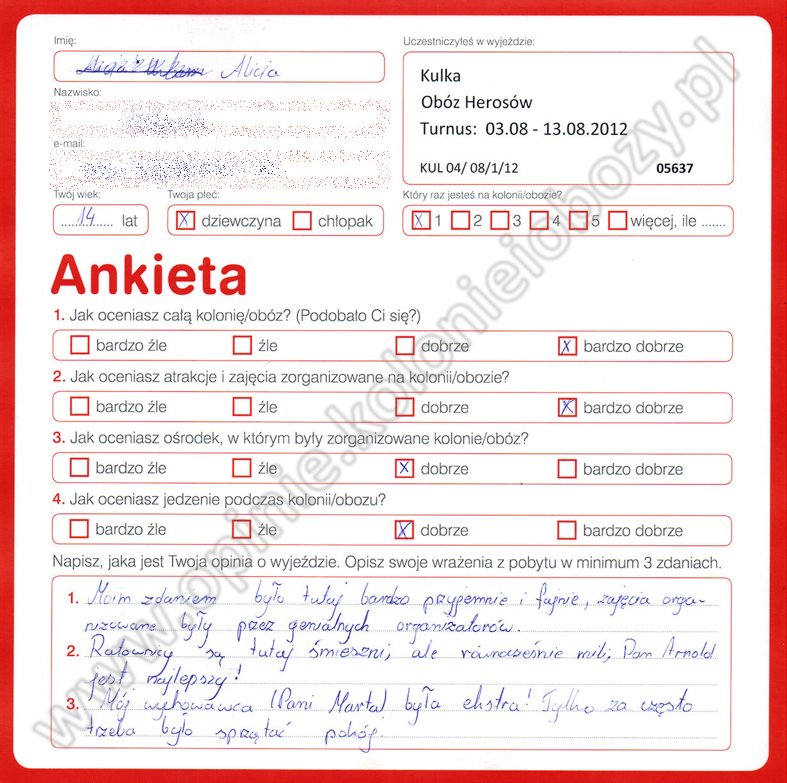 Imię:
Alicja
Nazwisko:
e-mail:
Twój wiek:
14 lat
Twoja płeć:
dziewczyna chłopak
Uczestniczyłeś w wyjeździe:
Kulka
Obóz Herosów
Turnus: 03.08 - 13.08.2012
KUL 04/ 08/1/12 05637
Który raz jesteś na kolonii/obozie?
1 2 3 4 5 więcej, ile .......
Ankieta
1. Jak oceniasz całą kolonię/obóz? (Podobało Ci się?)
bardzo źle źle dobrze bardzo dobrze
2. Jak oceniasz atrakcje i zajęcia zorganizowane na kolonii/obozie?
bardzo źle źle dobrze bardzo dobrze
3. Jak oceniasz ośrodek, w którym były zorganizowane kolonie/obóz?
bardzo źle źle dobrze bardzo dobrze
4. Jak oceniasz jedzenie podczas kolonii/obozu?
bardzo źle źle dobrze bardzo dobrze
Napisz, jaka jest Twoja opinia o wyjeździe. Opisz swoje wrażenia z pobytu w minimum 3 zdaniach.
1. Moim zdaniem było tutaj bardzo przyjemnie i fajnie, zajęcia orga-
nizowane były przez genialnych organizatorów.
2. Ratownicy są tutaj śmieszni, ale równocześnie mili, Pan Arnold
jest najlepszy!
3. Mój wychowawca (Pani Marta) była ekstra! Tylko za często
trzeba było sprzątać pokój.
www.opinie.kolonieiobozy.pl